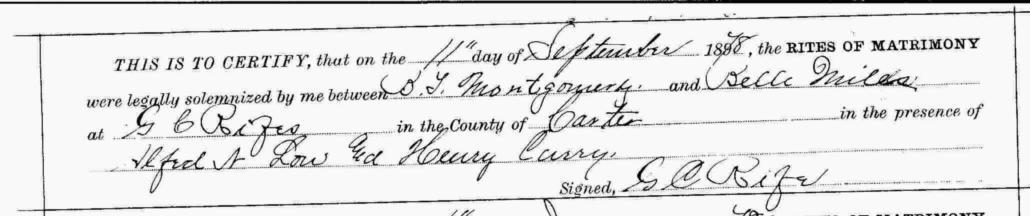 THIS IS TO CERTIFY, that on the 11" day of September 1898, the RITES OF MATRIMONY
were legally solemnized by me between B. T. Montgomery. and Belle
at G C Rifes in the County of Carter in the presence of
Alfred N Low Ed Henry Curry.
Signed, G C Rife
RITES OF MATRIMONY